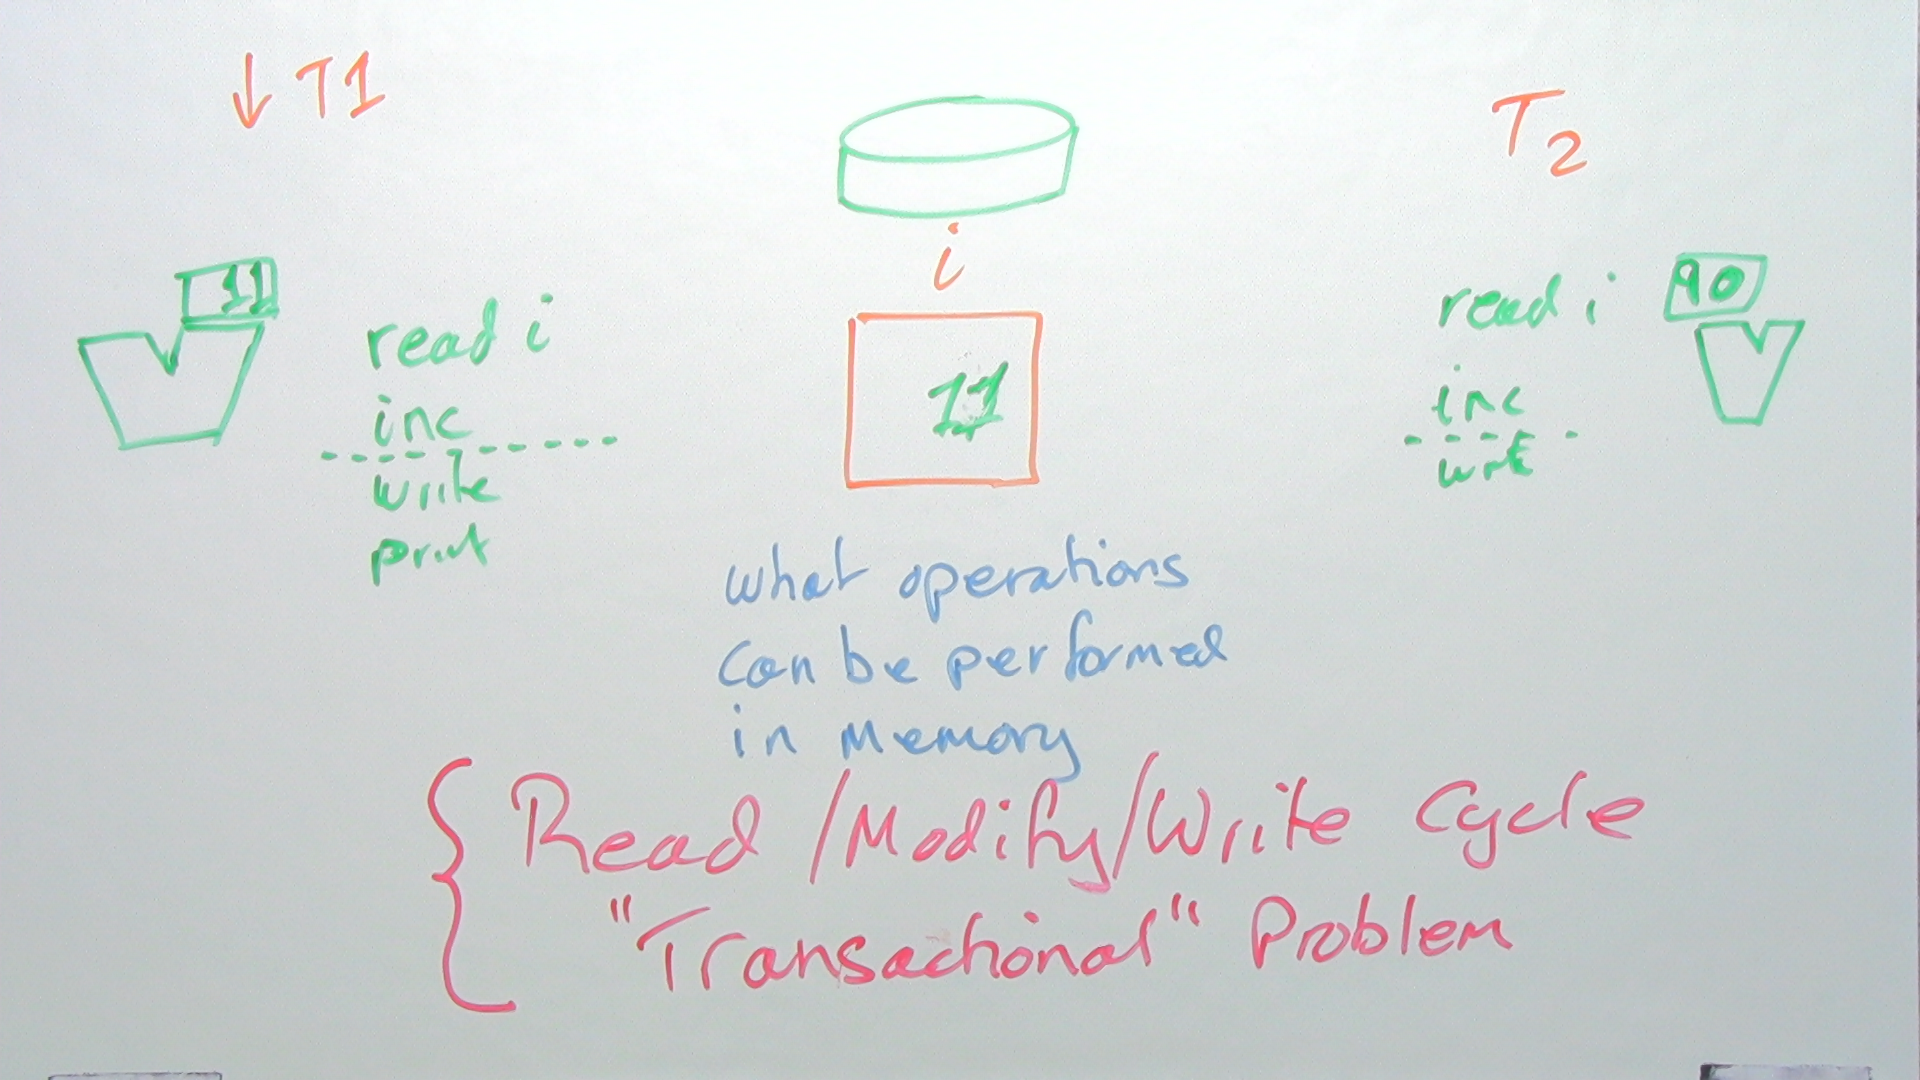 ↓ T1
T2
i
11
read i
inc
write
print
11
read i
inc
90
what operations
can be performed
in memory
Read /Modify/Write Cycle
"Transactional" Problem